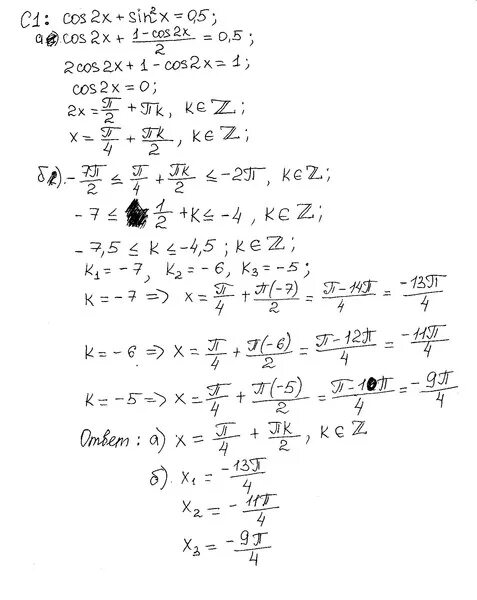 С1: cos2x + sin²x = 0,5;
а) cos2x + (1-cos2x)/2 = 0,5;
2cos2x + 1 - cos2x = 1;
cos2x = 0;
2x = π/2 + πk, k∈ℤ;
x = π/4 + πk/2, k∈ℤ;
б). -7π/2 ≤ π/4 + πk/2 ≤ -2π, k∈ℤ;
-7 ≤ 1/2 + k ≤ -4, k∈ℤ;
-7,5 ≤ k ≤ -4,5; k∈ℤ;
k₁ = -7, k₂ = -6, k₃ = -5;
k = -7 => x = π/4 + π(-7)/2 = (π-14π)/4 = -13π/4
k = -6 => x = π/4 + π(-6)/2 = (π-12π)/4 = -11π/4
k = -5 => x = π/4 + π(-5)/2 = (π-10π)/4 = -9π/4
Ответ: а) x = π/4 + πk/2, k∈ℤ
б). x₁ = -13π/4
x₂ = -11π/4
x₃ = -9π/4